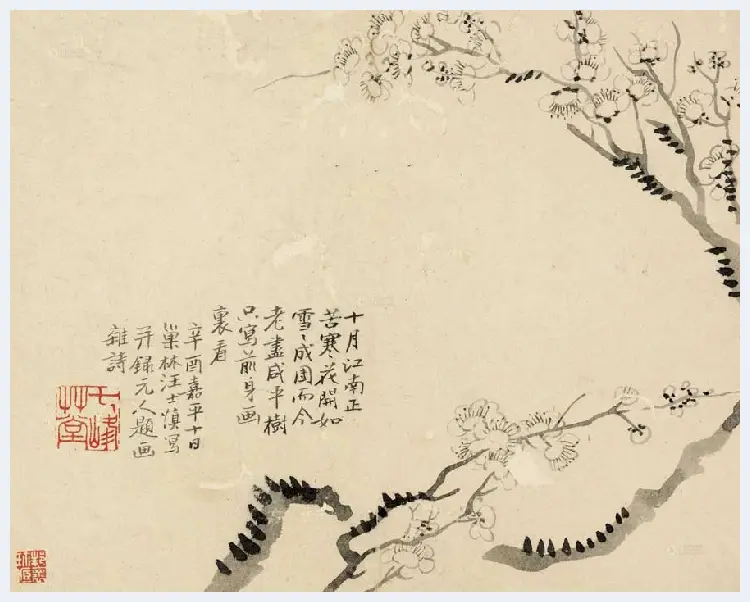 十月江南正
苦寒花開如
雪〻成團而今
老盡咸平樹
只寫前身畫
裏看
辛酉嘉平十日
巢林汪士慎寫
并錄元人題畫
雜詩
七峰
草堂